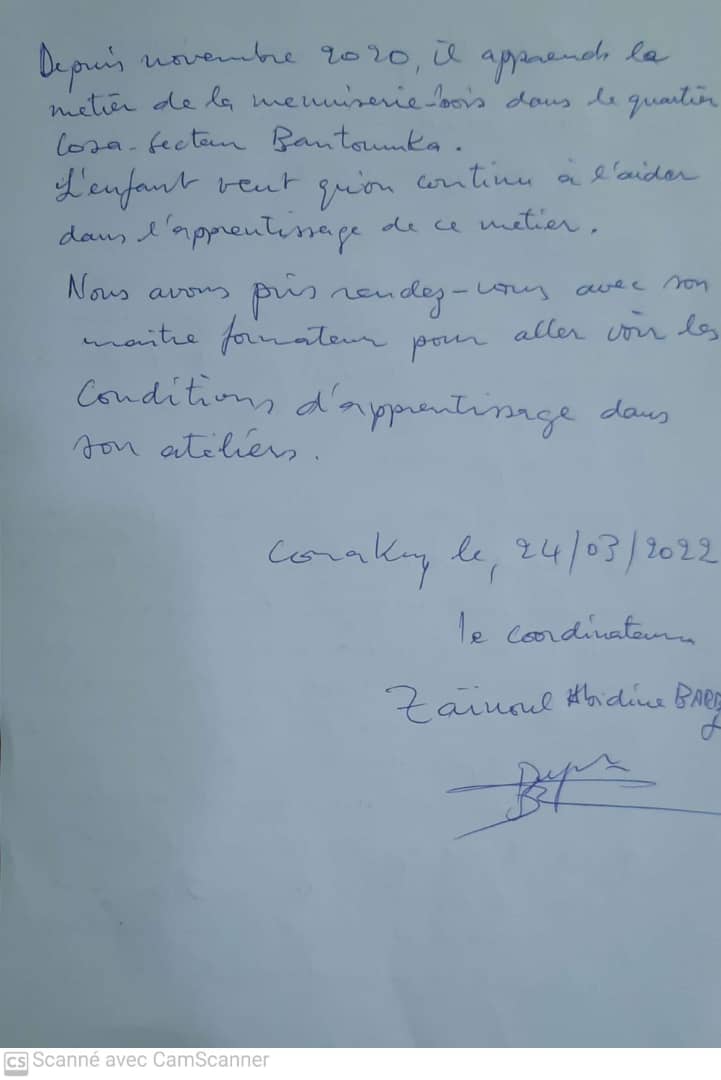 Depuis novembre 2020, il apprends la
metier de la menuiserie-bois dans le quartier
Cosa-secteur Bantounka.
L'enfant veut qu'on continu à l'aider
dans l'apprentissage de ce metier.
Nous avons pris rendez-vous avec son
maitre formateur pour aller voir les
Conditions d'apprentissage dans
son atéliérs.
Conakry le, 24/03/2022
le coordinateur
Zaïnoul Abidine
CS Scanné avec CamScanner